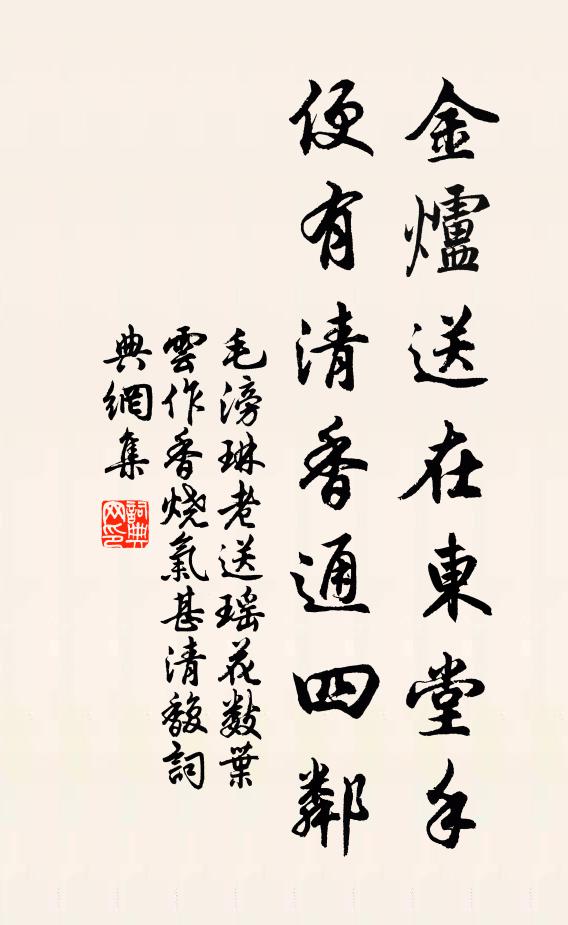 金爐送在東堂手
便有清香通四鄰
毛滂琳老送瑶花數葉
雲作香燒氣甚清馥詞
典網集
詞典網印